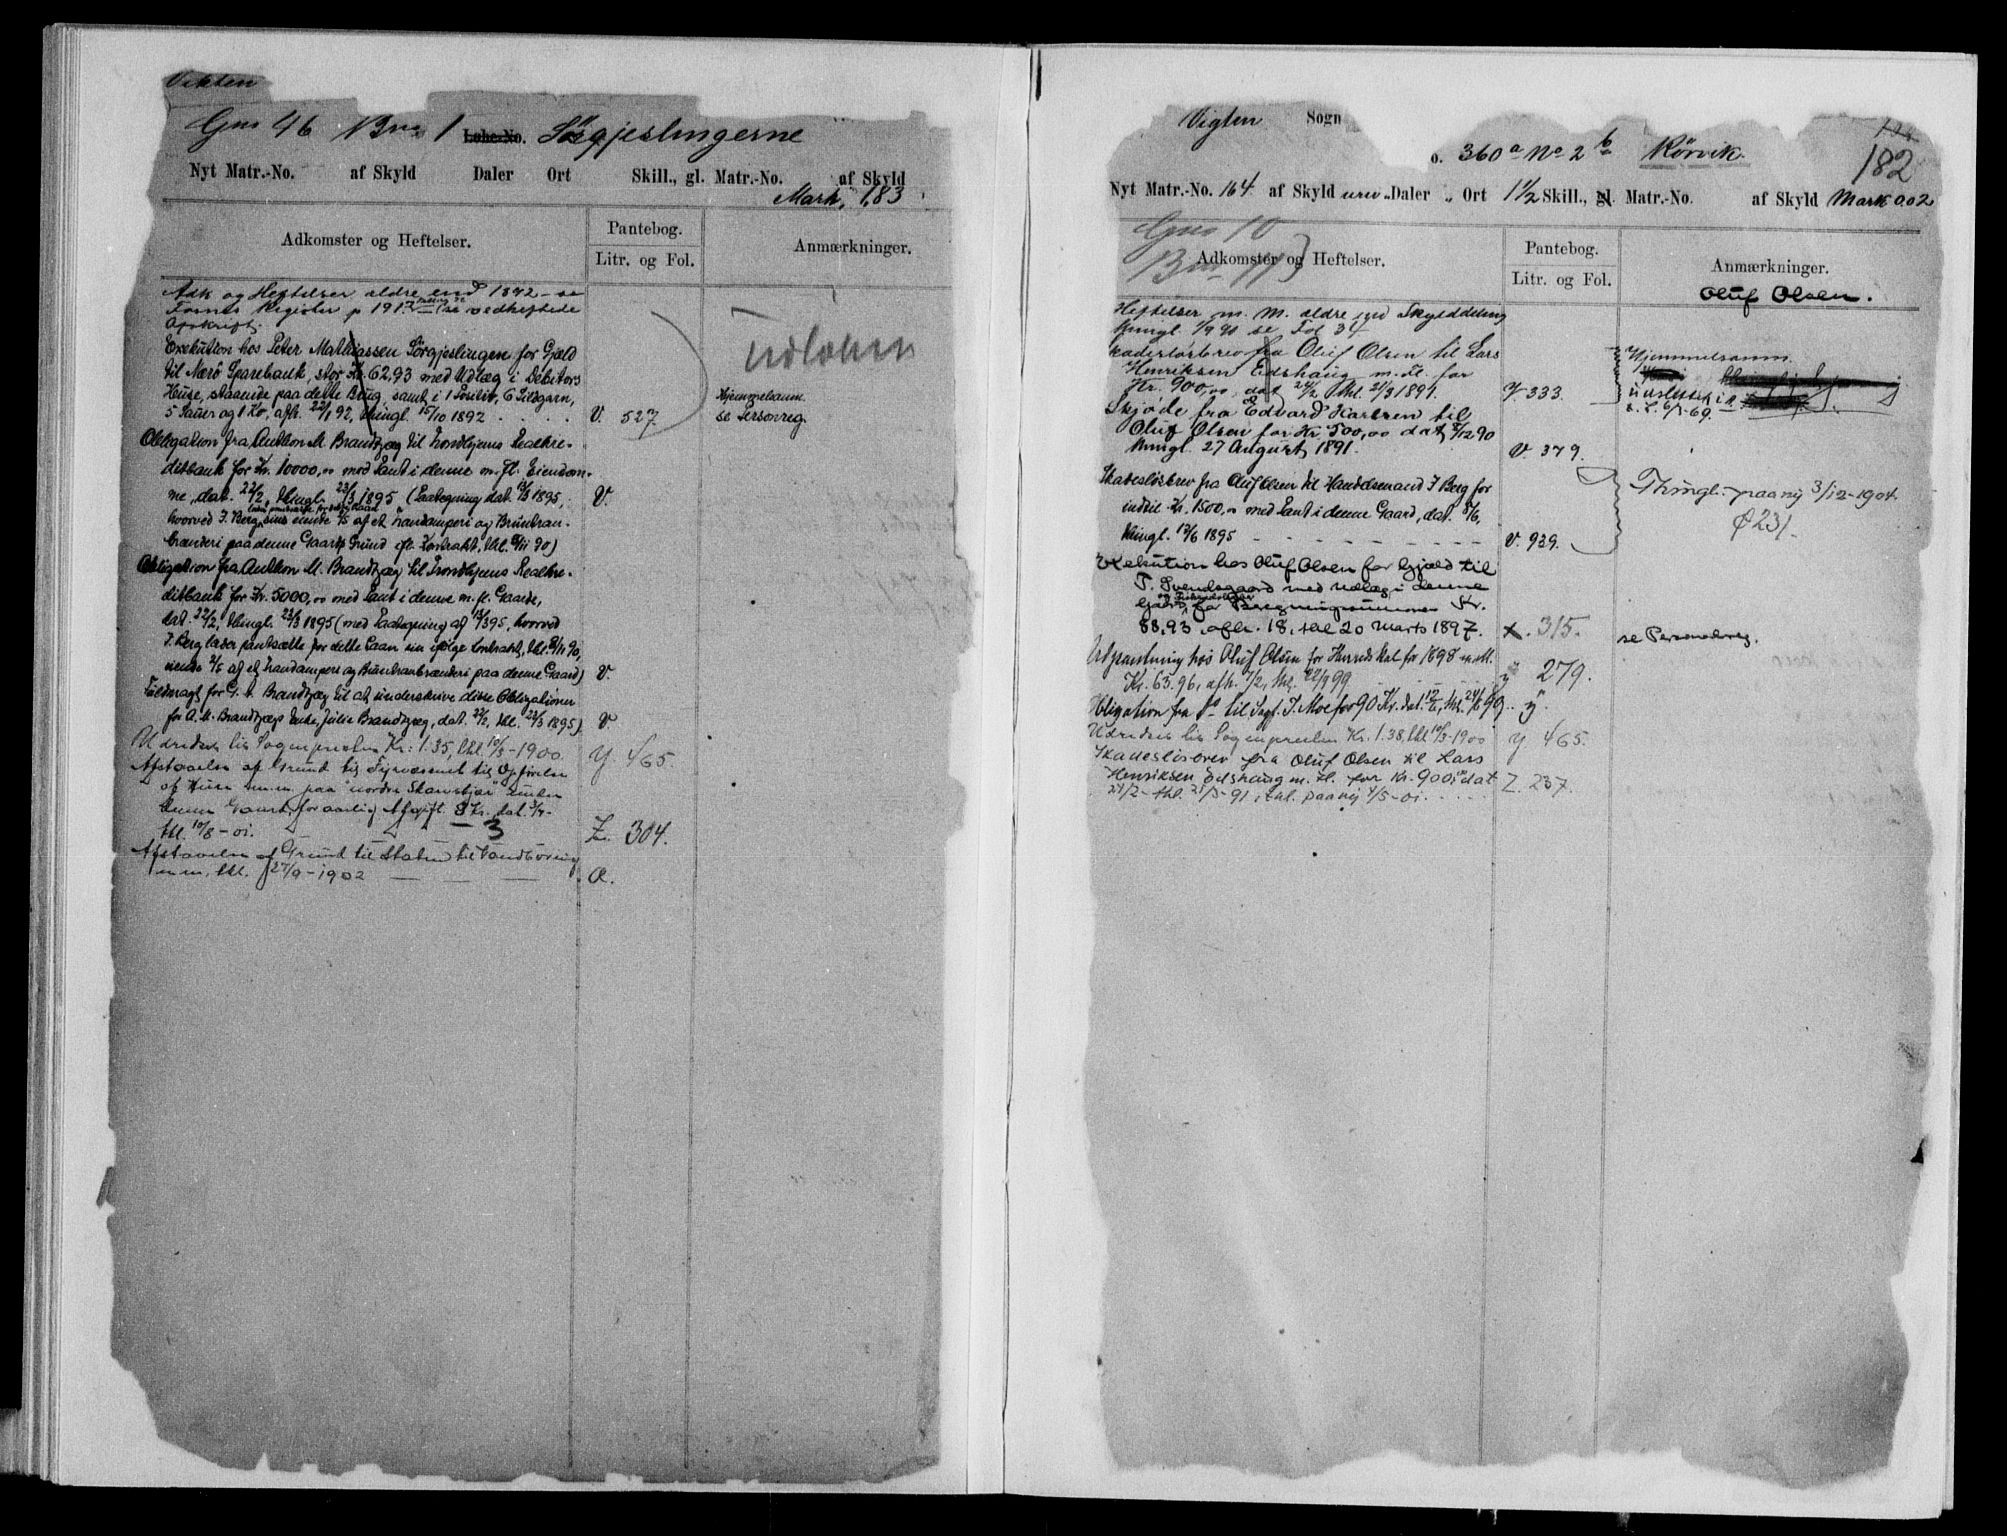 Vikten
Gno 46 Bno 1 Løbe-No. Sørgjeslingerne
Nyt Matr.-No. af Skyld Daler Ort Skill., gl. Matr.-No. af Skyld
Mark, 1,83
Adkomster og Heftelser.
Pantebog.
Litr. og Fol.
Anmærkninger.
Adk og Heftelser ældre end 1892 - se
Register p 191 vedheftede
Afskrift.
Exekution hos Peter Mathiassen Sørgjeslingen for Gjæld
til Nærø Sparebank, stor Kr. 62,93 med Udlæg i Debitors
Huse, staaende paa dette Brug, samt i 1 6 Sildgarn,
5 Sauer og 1 Ko, afh. 22/1 92, thingl 15/10 1892 . . .
V. 527
Udløben
Hjemmelsanm.
se Personreg.
Obligation fra Anthon M. Brandtzæg til Trondhjems Realkre-
ditbank for Kr. 10000,00 med Pant i denne m. fl. Eiendom-
me, dat. 22/2, thingl. 23/3 1895 (Paategning dat. 13/3 1895,
V.
hvorved J. Berg sin eiende 2/5 af et Trandamperi og Bruntran-
brænderi paa denne Gaards Grund ifl. Kontrakt, thl. 6/11 90)
Obligation fra Anthon M. Brandtzæg til Trondhjems Realkre-
ditbank for Kr. 5000,00 med Pant i denne m. fl. Gaarde,
dat. 22/2, thingl. 23/3 1895 (med Paategning af 13/3 95, hvorved
J. Berg lader pantsætte for dette Laan sin ifølge Contrakt, thl. 6/11 90,
eiende 2/5 af et Trandamperi og Bruntranbrænderi paa denne Gaard)
V.
Fuldmagt for G. A. Brandtzæg til at underskrive disse Obligationer
for A. M. Brandtzægs Enke, Julie Brandtzæg, dat. 22/2, thl. 23/3 1895)
V.
Udredsel til Sognepresten Kr: 1.35, thl 10/3 - 1900
Y. 465.
Afstaaelse af Grund til Fyrvæsenet til Opførelse
af Huse m.m. paa "nordre Skarvskjær" under
denne Gaard, for aarlig Afgift 3 Kr. dat.
3
thl. 10/8 - 01.
Z. 304.
Afstaaelse af Grund til Staten til Vandboring
m.m. thl. 27/9 - 1902
A.
Vigten Sogn
o. 360a No 2 b Rörvik.
182
Nyt Matr.-No. 164 af Skyld Daler „ Ort 1 1/2 Skill., gl. Matr.-No. af Skyld Mark 0.02
Gno 10
Bno 11
Adkomster og Heftelser.
Pantebog.
Litr. og Fol.
Anmærkninger.
Oluf Olsen.
Heftelser m. M. ældre end Skylddeling
thingl. 1/9 90 se Fol 34
Skadesløsbrev fra Oluf Olsen til Lars
Henriksen Edshaug m. Fl. for
Kr. 900,00, dat 24/2 thl. 21/3 1891.
Y 333.
Hjemmelsanm.
6/1-69.
Skjøde fra Edvard Karlsen til
Oluf Olsen for Kr. 500,00 dat 8/12 90
thingl. 27 August 1891.
V. 379.
Skadesløsbrev fra Oluf Olsen til Handelsmand J Berg for
indtil Kr. 1500,00 med Pant i denne Gaard, dat. 8/6,
thingl. 13/6 1895
V. 939.
Thingl. paany 3/12-1904.
C 231.
Exekution hos Oluf Olsen for Gjæld til
T. Svendsgaard med Udlæg i denne
Gaard for Beregningssummen Kr.
88,93, afh. 18, thl 20 Marts 1897.
X. 315.
se Personalreg.
Udpantning hos Oluf Olsen for Herredsskat for 1898 m. M.
Kr. 63.96, afh. 7/2, thl. 22/9 99
Y 279.
Obligation fra Do til Sagf. J. Moe for 90 Kr. dat. 12/6, thl. 24/8 99
Y.
Udredsel til Sogneprestn Kr. 1.38, thl 10/3-1900
Y 465.
Skadesløsbrev fra Oluf Olsen til Lars
Henriksen Edshaug m. Fl. for Kr. 900 dat
24/2 - thl. 21/3-91, thl. paany 4/5-01.
Z. 237.